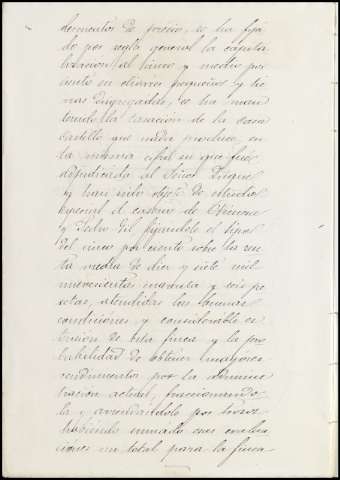 dementos de precios, se ha fija
do por regla general la capita
lizacion al cinco y medio por
ciento en olivares pequeños y tie
rras segregadas, se ha man
tenido la tasacion de la casa
castillo que nada produce, en
la misma cifra en que fue
adjudicada al Señor Duque
y han sido objeto de estudio
especial el cortijo de
y Isla del fijandole el tipo
del cinco por ciento sobre la ren
ta media de diez y siete mil
novecientas cuarenta y seis pe
setas, atendidas las buenas
condiciones y considerable es
tension de esta finca y la pro
babilidad de obtener mayores
rendimientos por la adminis
tracion actual, fraccionando
la y arrendandola por trozos
habiendo sumado esas evalua
ciones un total para la finca